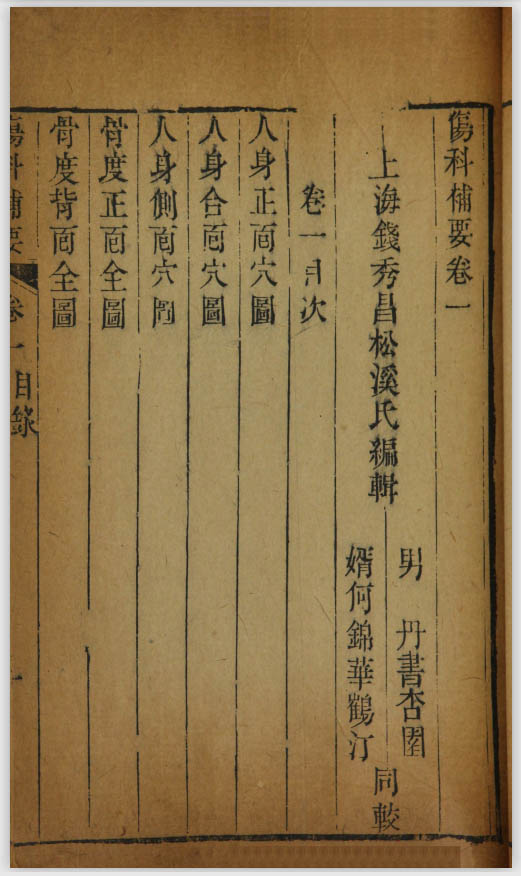 傷科補要卷一
上海錢秀昌松溪氏編輯
男　丹書杏園
婿何錦華鶴汀
同較
卷一目次
人身正面穴圖
人身合面穴圖
人身側面穴圖
骨度正面全圖
骨度背面全圖
傷科補要
卷一目錄
一